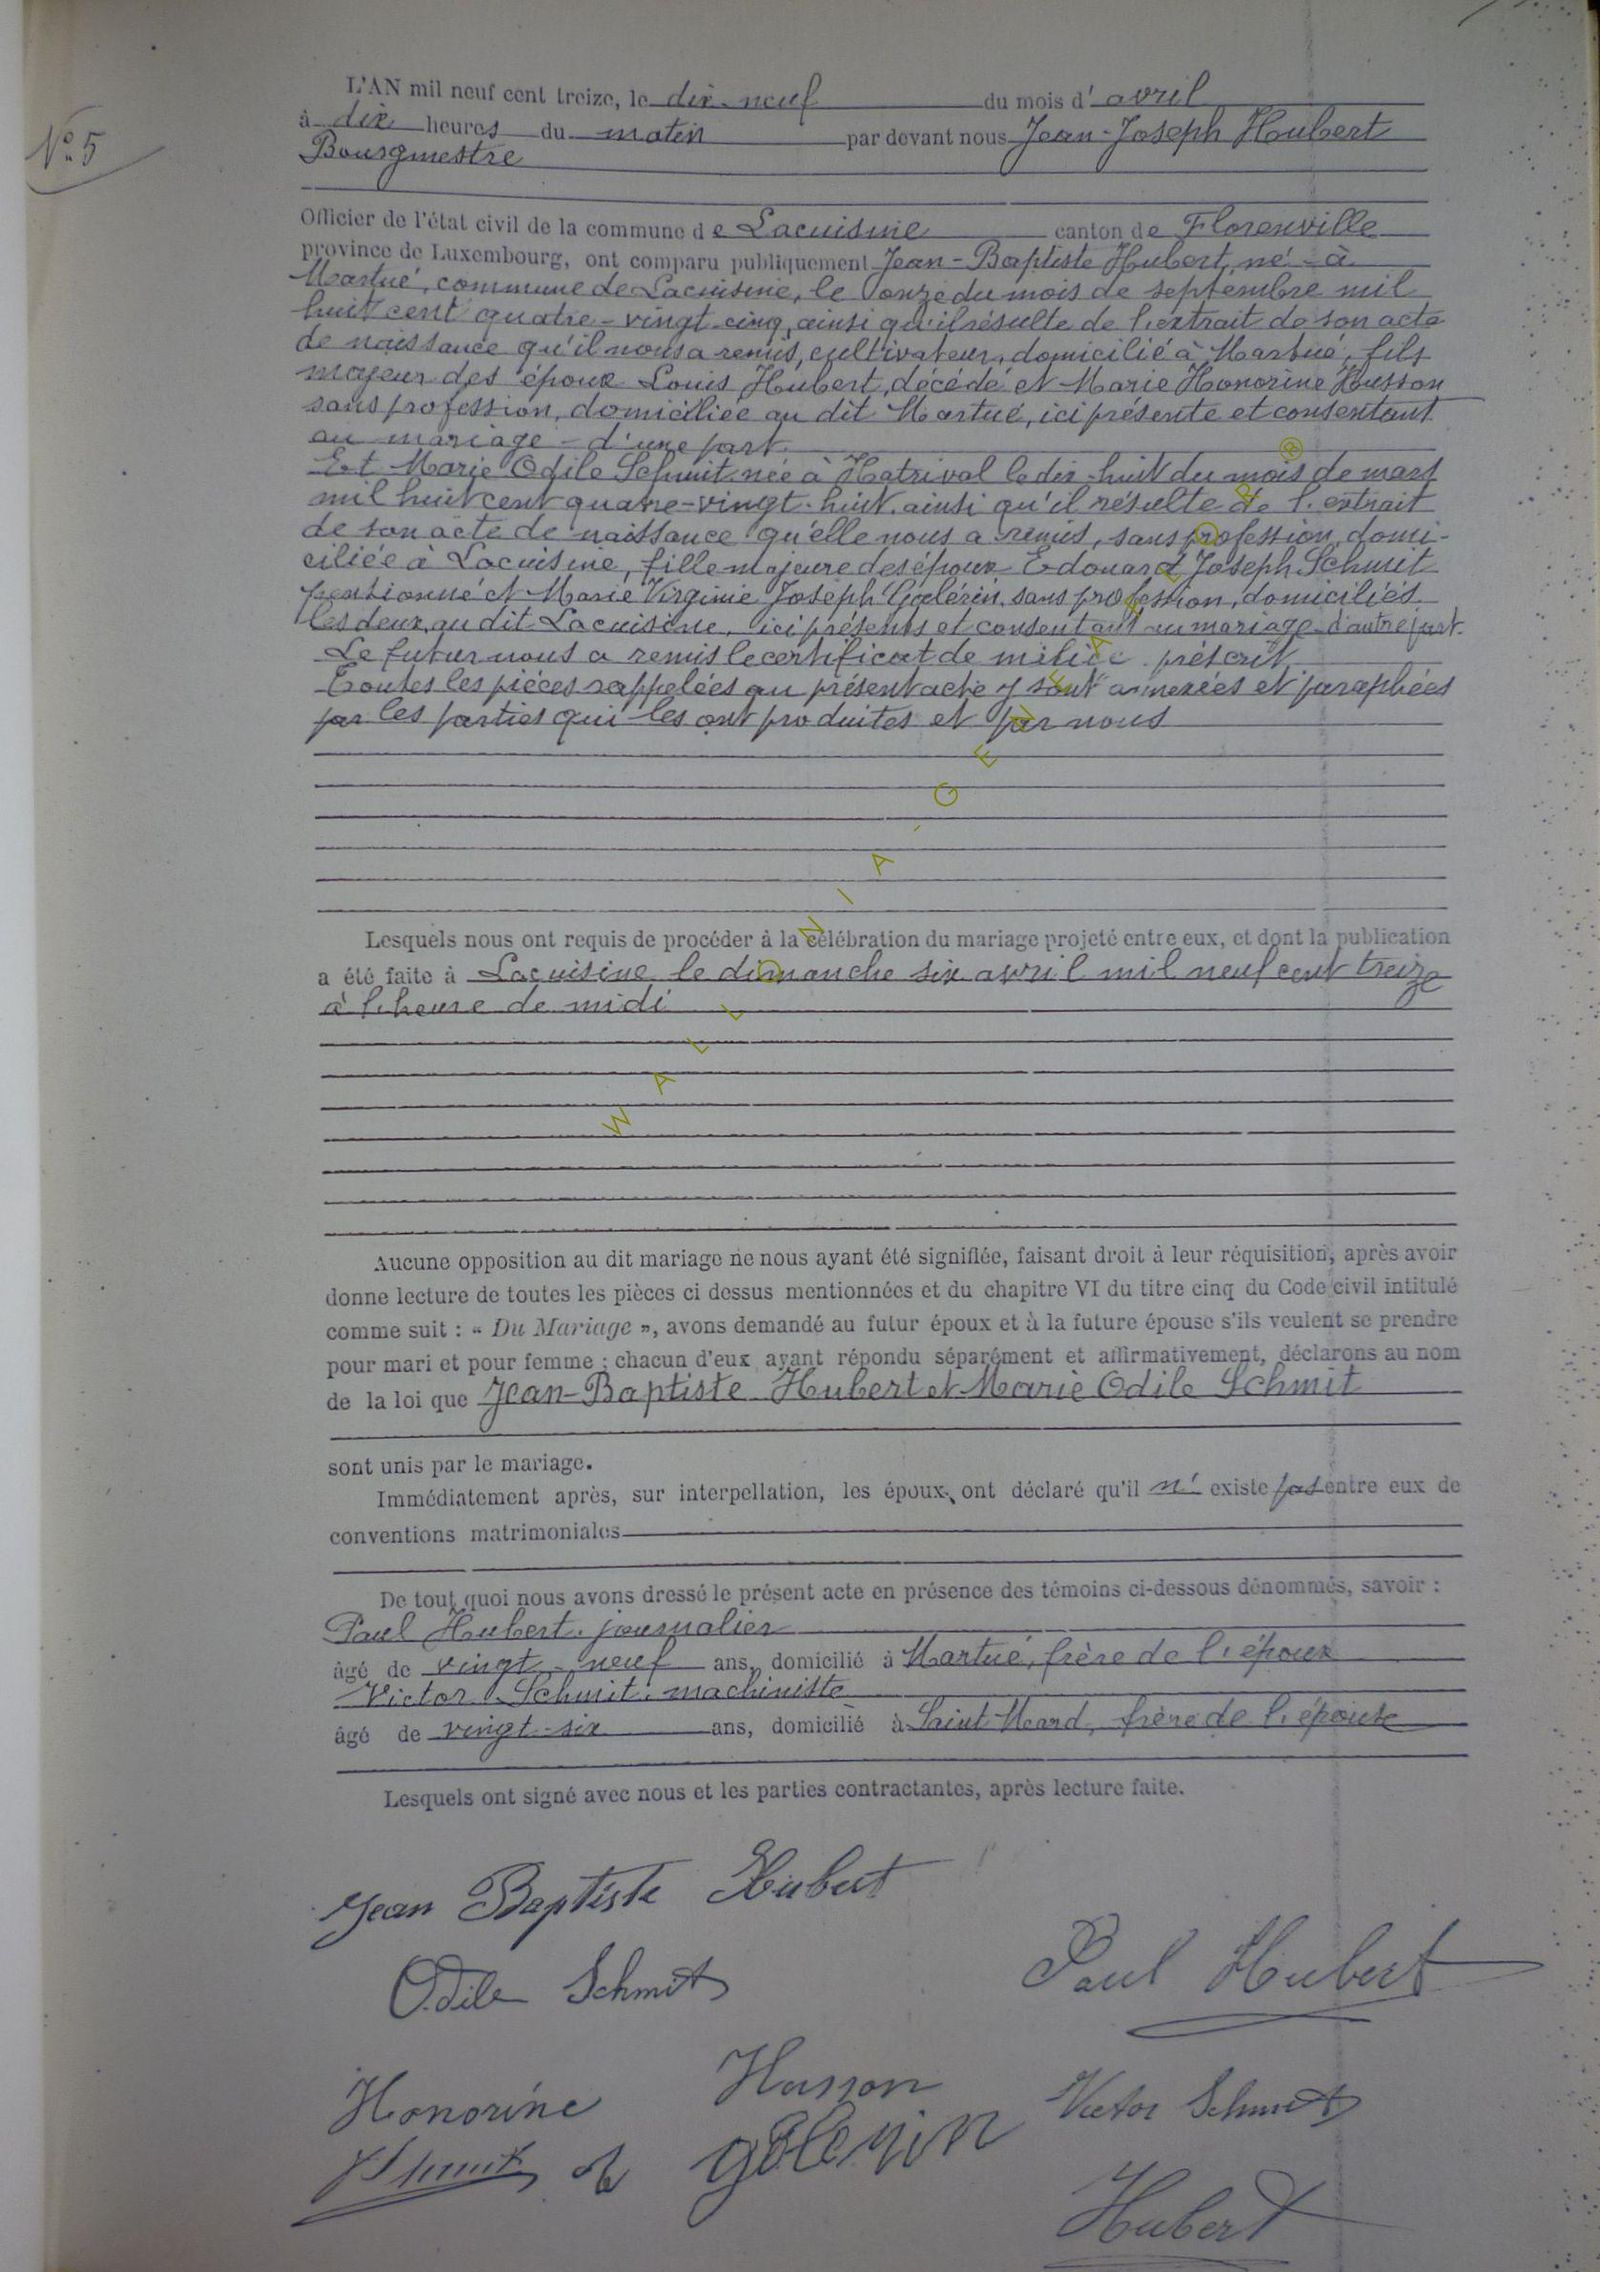 N° 5
L'AN mil neuf cent treize, le dix-neuf du mois d'avril
à dix heures du matin par devant nous Jean-Joseph Hubert
Bourgmestre
Officier de l'état civil de la commune de Lacuisine canton de Florenville
province de Luxembourg, ont comparu publiquement Jean-Baptiste Hubert, né à
Martué, commune de Lacuisine, le onze du mois de septembre mil
huit cent quatre-vingt-cinq, ainsi qu'il résulte de l'extrait de son acte
de naissance qu'il nous a remis, cultivateur, domicilié à Martué, fils
majeur des époux Louis Hubert, décédé et Marie Honorine Husson
sans profession, domiciliée au dit Martué, ici présente et consentant
au mariage - d'une part.
Et Marie Odile Schmit née à Hatrival le dix-huit du mois de mars
mil huit cent quatre-vingt-huit, ainsi qu'il résulte de l'extrait
de son acte de naissance qu'elle nous a remis, sans profession, domi-
ciliée à Lacuisine, fille majeure des époux Edouard Joseph Schmit
pensionné et Marie Virginie Joseph Galérin, sans profession, domiciliés
les deux au dit Lacuisine, ici présents et consentant au mariage d'autre part.
Le futur nous a remis le certificat de milice prescrit
Toutes les pièces rappelées au présent acte y sont annexées et paraphées
par les parties qui les ont produites et par nous
Lesquels nous ont requis de procéder à la célébration du mariage projeté entre eux, et dont la publication
a été faite à Lacuisine le dimanche six avril mil neuf cent treize
à l'heure de midi
WALLONIA-GENEALOR®
Aucune opposition au dit mariage ne nous ayant été signifiée, faisant droit à leur réquisition, après avoir
donne lecture de toutes les pièces ci dessus mentionnées et du chapitre VI du titre cinq du Code civil intitulé
comme suit : « Du Mariage », avons demandé au futur époux et à la future épouse s'ils veulent se prendre
pour mari et pour femme ; chacun d'eux ayant répondu séparément et affirmativement, déclarons au nom
de la loi que Jean-Baptiste Hubert et Marie Odile Schmit
sont unis par le mariage.
Immédiatement après, sur interpellation, les époux ont déclaré qu'il n'existe pas entre eux de
conventions matrimoniales
De tout quoi nous avons dressé le présent acte en présence des témoins ci-dessous dénommés, savoir :
Paul Hubert, journalier
âgé de vingt-neuf ans, domicilié à Martué, frère de l'époux
Victor Schmit, machiniste
âgé de vingt-six ans, domicilié à Saint Mard, frère de l'épouse
Lesquels ont signé avec nous et les parties contractantes, après lecture faite.
Jean Baptiste Hubert
Odile Schmit
Paul Hubert
Honorine Husson
Victor Schmit
Hubert